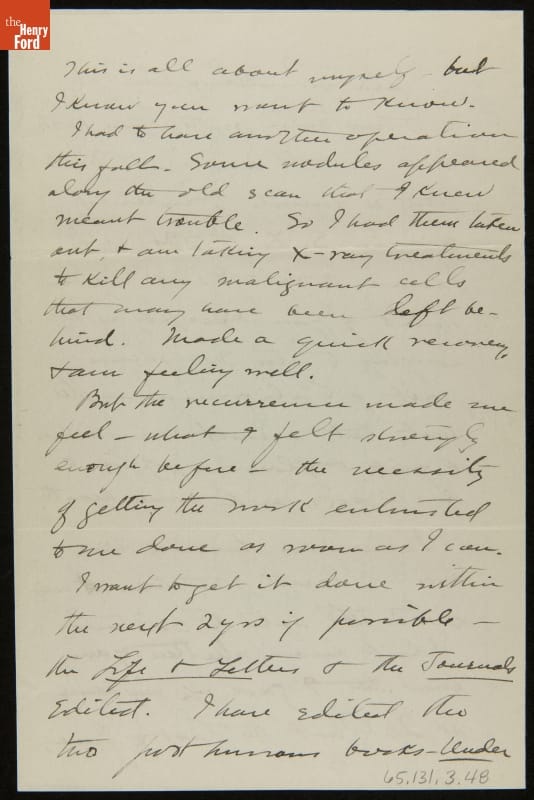 the
Henry
Ford
This is all about myself - but
I know you want to know.
I had to have another operation
this fall. Some nodules appeared
along the old scar that I knew
meant trouble. So I had them taken
out, & am taking X-ray treatments
to kill any malignant cells
that may have been left be-
hind. Made a quick recovery,
& am feeling well.
But the recurrence made me
feel - what I felt strongly
enough before - the necessity
of getting the work entrusted
to me done as soon as I can.
I want to get it done within
the next 2 yrs if possible -
the Life & Letters & the Journals
Edited. I have edited the
two posthumous books - Under
65.131.3.48